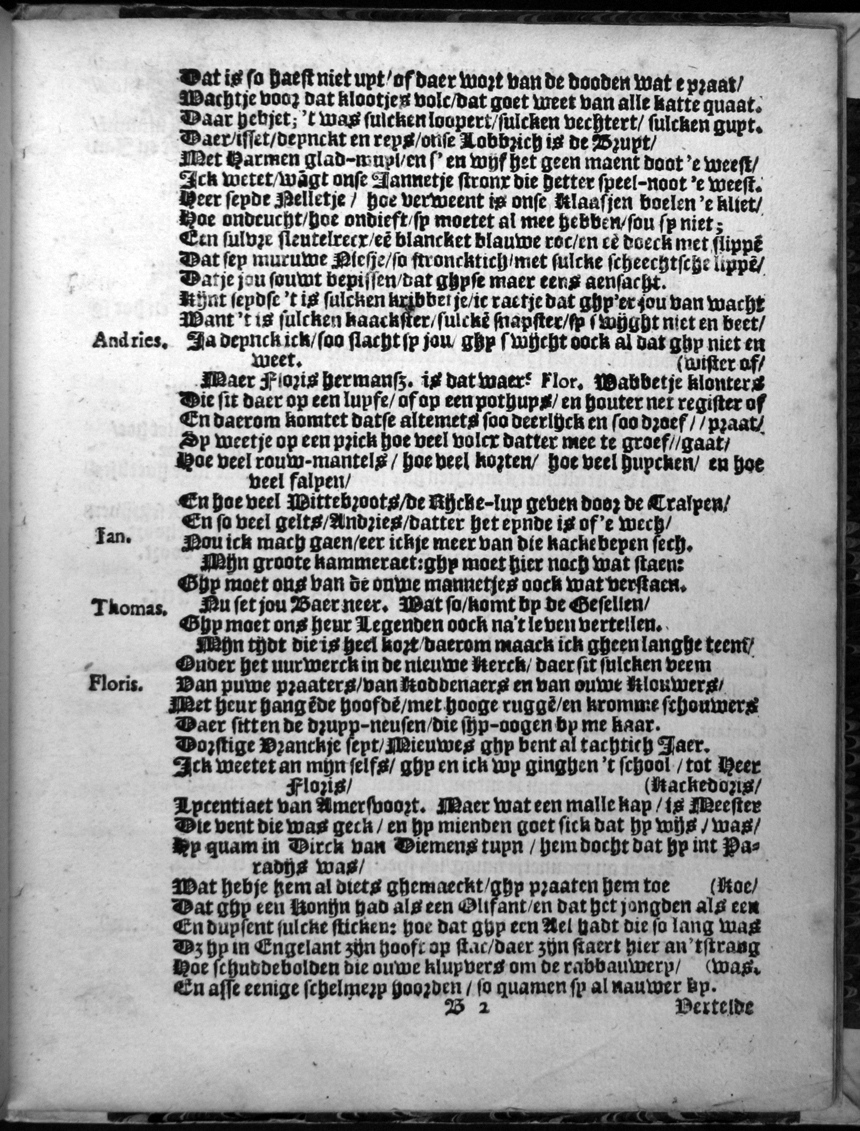 Dat is so haest niet uyt/of daer wort van de dooden wat e praat/
Wachtje voor dat klootjes volc/dat goet weet van alle katte quaat.
Daar hebjet; 't was sulcken loopert/sulcken vechtert/ sulcken guyt.
Daer/isset/deynckt en reys/onse Lobbrich is de Bruyt/
Met Harmen glad-muyl/en s' en wijf het geen maent doot 'e weest/
Ick wetet/wãgt onse Jannetje stronx die hetter speel-noot 'e weest.
Heer seyde Nelletje / hoe verweent is onse Klaasjen boelen 'e kliet/
Hoe ondeucht/hoe ondieft/sy moetet al mee hebben/sou sy niet;
Een sulvre sleutelreex/eẽ blancket blauwe roc/en eẽ doeck met slippẽ
Dat sey muruwe Niesje/so stroncktich/met sulcke scheechtsche lippẽ/
Datje jou souwt bepissen/dat ghyse maer eens aensacht.
Kijnt seydse 't is sulcken kribbetje/ic raetje dat ghy'er jou van wacht
Want 't is sulcken kaackster/sulckẽ snapster/sy swijght niet en beet/
Andries. Ja deynck ick/soo slacht sy jou/ ghy swijcht oock al dat ghy niet en
weet. (wister of/
Maer Floris hermansz. is dat waer? Flor. Wabbetje klonters
Die sit daer op een luyfe/of op een pothuys/en houter net register of
En daerom komtet datse altemets soo deerlijck en soo droef//praat/
Sy weetje op een prick hoe veel volcx datter mee te groef//gaat/
Hoe veel rouw-mantels/ hoe veel korten/ hoe veel huycken/ en hoe
veel falyen/
En hoe veel Wittebroots/de Rijcke-luy geven door de Tralyen/
En so veel gelts/Andries/datter het eynde is of 'e wech/
Ian. Nou ick mach gaen/eer ickje meer van die kackebeyen sech.
Mijn groote kammeraet:ghy moet hier noch wat staen:
Ghy moet ons van de ouwe mannetjes oock wat verstaen.
Thomas. Nu set jou Baer neer. Wat so/komt by de Gesellen/
Ghy moet ons heur Legenden oock na't leven vertellen.
Mijn tijdt die is heel kort/daerom maack ick gheen langhe teem/
Onder het uurwerck in de nieuwe Kerck/ daer sit sulcken veem
Floris. Van puwe praaters/van Koddenaers en van ouwe Klouwers/
Met heur hangẽde hoofdẽ/met hooge ruggẽ/en kromme schouwers
Daer sitten de druyp-neusen/die sijp-oogen by me kaar.
Dorstige Vranckje seyt/Nieuwes ghy bent al tachtich Jaer.
Ick weetet an mijn selfs/ ghy en ick wy ginghen 't school / tot Heer
Floris/ (Kackedoris/
Lycentiaet van Amersvoort. Maer wat een malle kap / is Meester
Die vent die was geck / en hy mienden goet sick dat hy wijs / was/
Hy quam in Dirck van Diemens tuyn / hem docht dat hy int Pa-
radijs was/
Wat hebje hem al diets ghemaeckt/ghy praaten hem toe (Koe/
Dat ghy een Konijn had als een Olifant/en dat het jongden als een
En duysent sulcke sticken: hoe dat ghy een Ael hadt die so lang was
Dz hy in Engelant zijn hooft op stac/daer zijn staert hier an'tstrang
Hoe schuddebolden die ouwe kluyvers om de rabbauwery/ (was.
En asse eenige schelmery hoorden / so quamen sy al nauwer by.
B 2 Vertelde